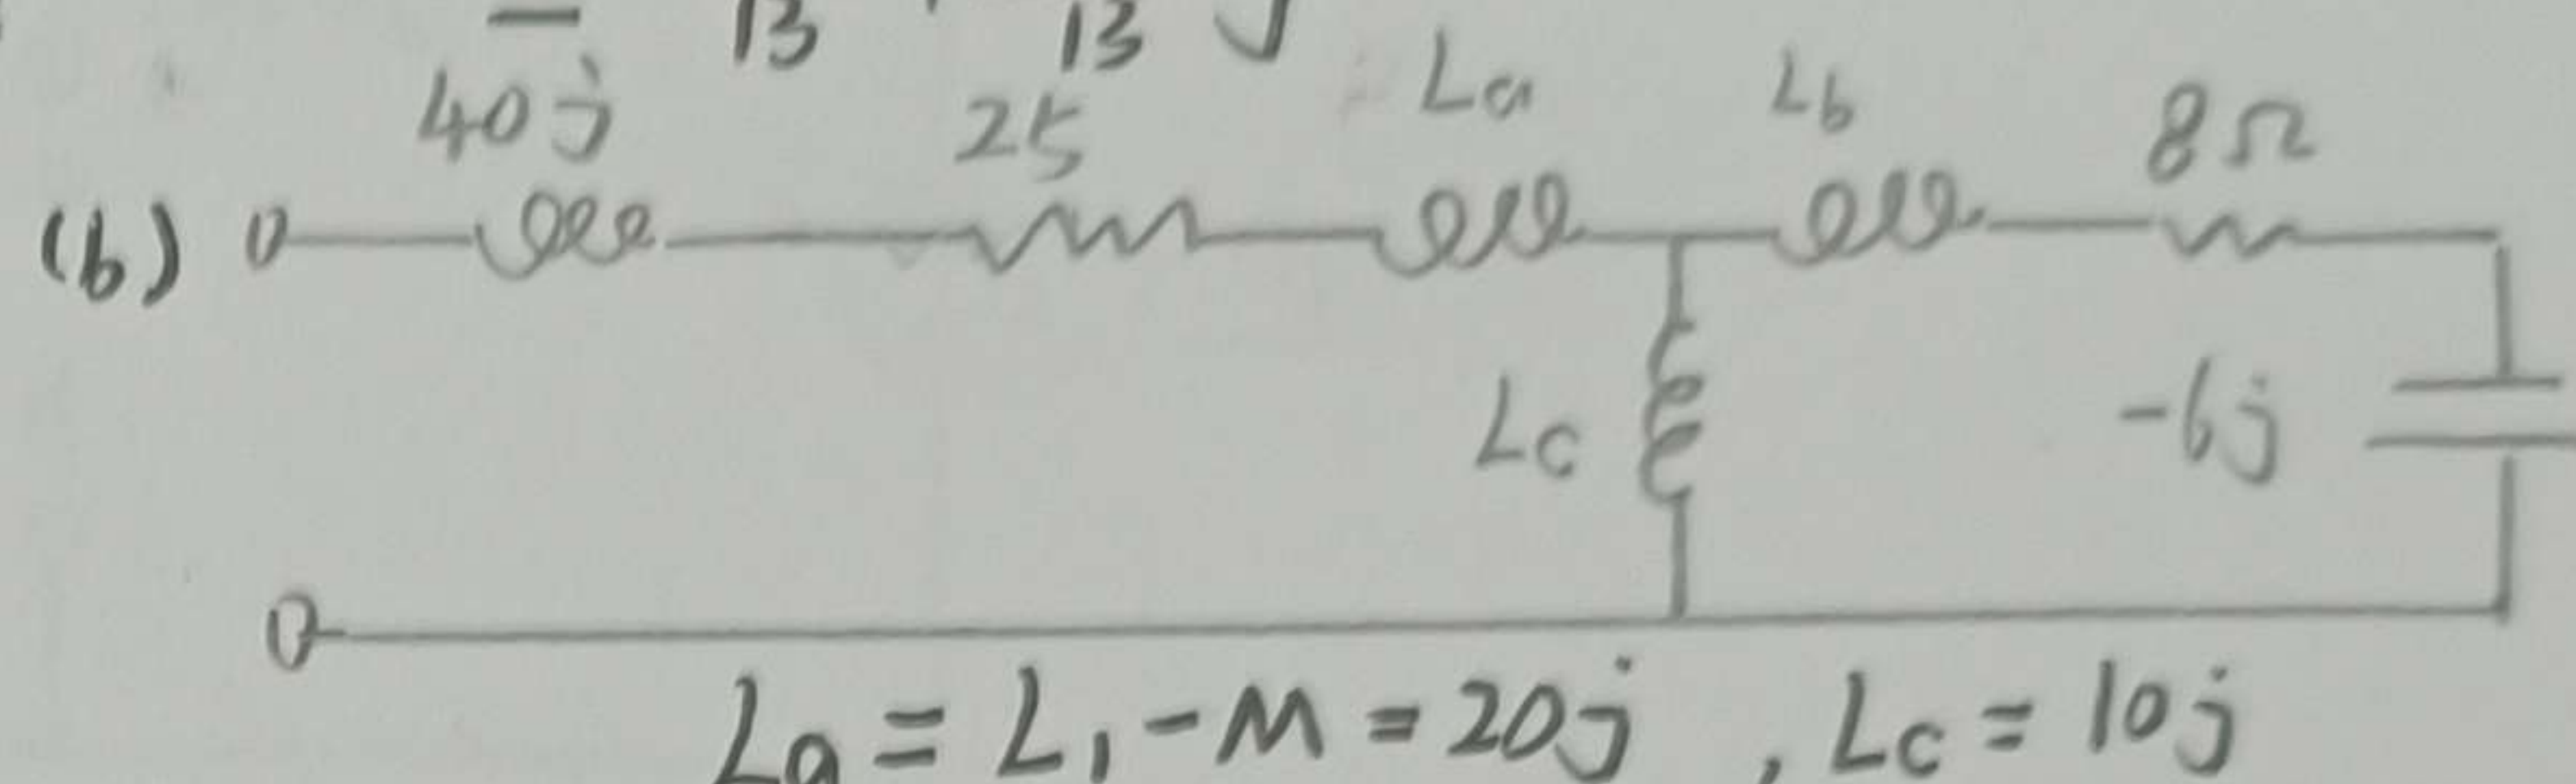 13 13 j
40j 25 La Lb 8Ω
(b)
Lc -6j
La = L₁ - M = 20j , Lc = 10j